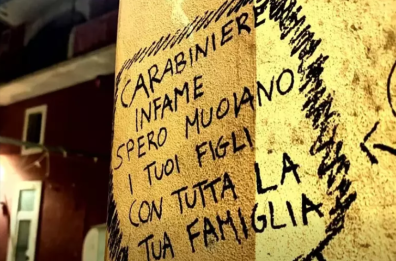 CARABINIERE
INFAME
SPERO MUOIANO
I TUOI FIGLI
CON TUTTA LA
TUA FAMIGLIA